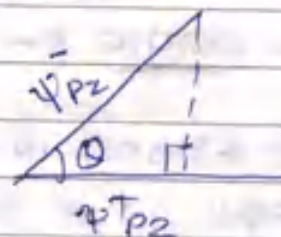 ψ⁻pz
θ
ψ⁺pz